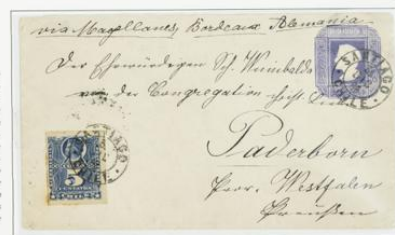 via Magellanes, Bordeaux Alemania
Der Ehrwürdigen Sch.
der Congregation
Paderborn
Prov. Westfalen
Preußen
SANTIAGO
CHILE
SANTIAGO
5